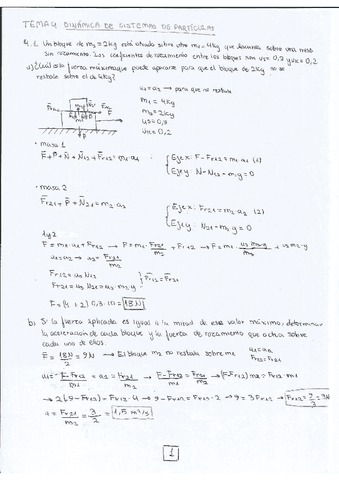 TEMA 4 DINÁMICA DE SISTEMAS DE PARTÍCULAS
4.1. Un bloque de m2=2kg está situado sobre otro m1=4kg que descansa sobre una mesa
sin rozamiento. Los coeficientes de rozamiento entre los bloques son us=0,3 y uk=0,2
a) ¿Cuál es la fuerza máxima que puede aplicarse para que el bloque de 2kg no se
resbale sobre el de 4kg?
a1=a2 → para que no resbale
m1=4kg
m2=2kg
us=0,3
uk=0,2
• masa 1
F+P+N+N12+Fr12=m1·a1
Eje x: F-Fr12=m1·a1 (1)
• masa 2
Fr21+P+N21=m2·a2
Eje x: Fr21=m2·a2 (2)
Eje y: N21-m2g=0
1y2
a1=a2 → a2=Fr21/m2
Fr12=us N12
Fr12=Fr21
18N
b) Si la fuerza aplicada es igual a la mitad de ese valor máximo, determinar
la aceleración de cada bloque y la fuerza de rozamiento que actúa sobre
cada uno de ellos.
F=18N/2=9N → El bloque m2 no resbala sobre m1
a1=a2
Fr12=Fr21
→ 2(9-Fr12)=Fr12·4 → 9-Fr12=Fr12·2 → 9=3Fr12 →
a=Fr21/m2=3/2=1,5 m/s²
1